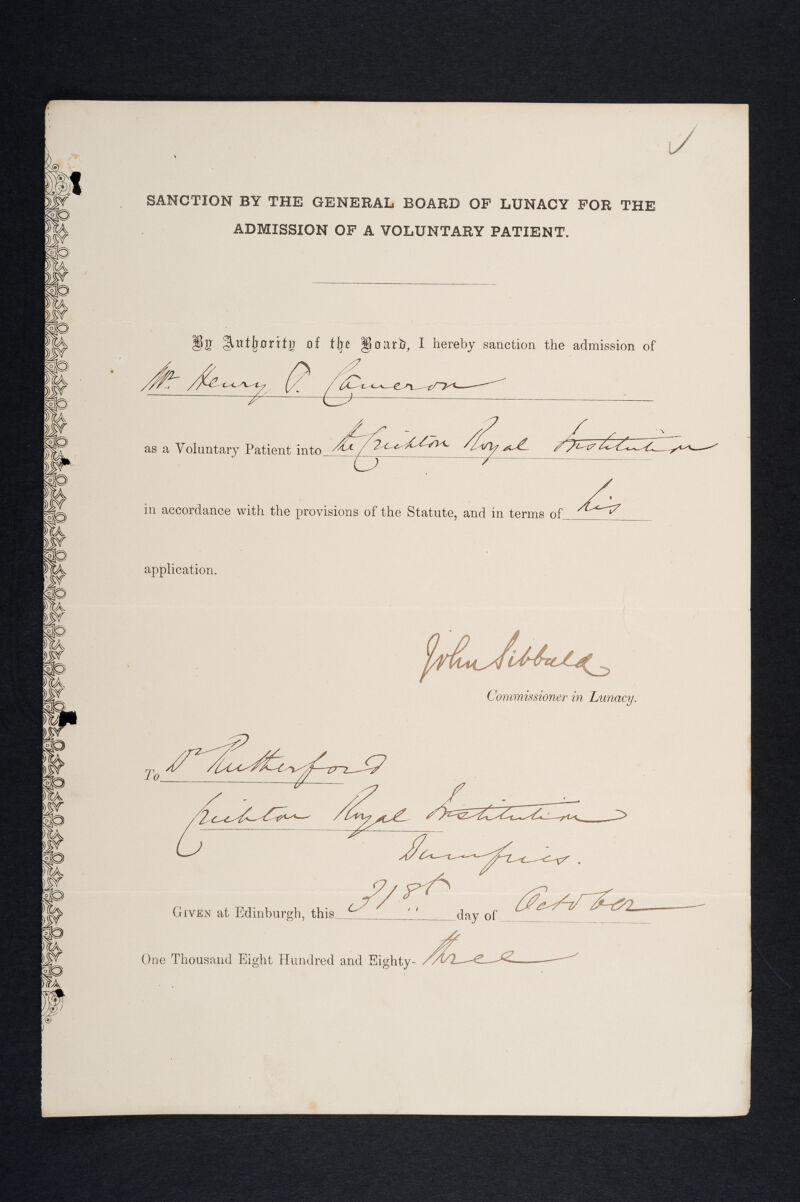 SANCTION BY THE GENERAL BOARD OF LUNACY FOR THE
ADMISSION OF A VOLUNTARY PATIENT.
By Authority of the Board, I hereby sanction the admission of
Mr. Henry P. Cameron
as a Voluntary Patient into the Crichton Royal Institution
in accordance with the provisions of the Statute, and in terms of his
application.
John Sibbald
Commissioner in Lunacy.
To Dr Rutherford
Crichton Royal Institution
Dumfries.
GIVEN at Edinburgh, this 31st day of October
One Thousand Eight Hundred and Eighty-three